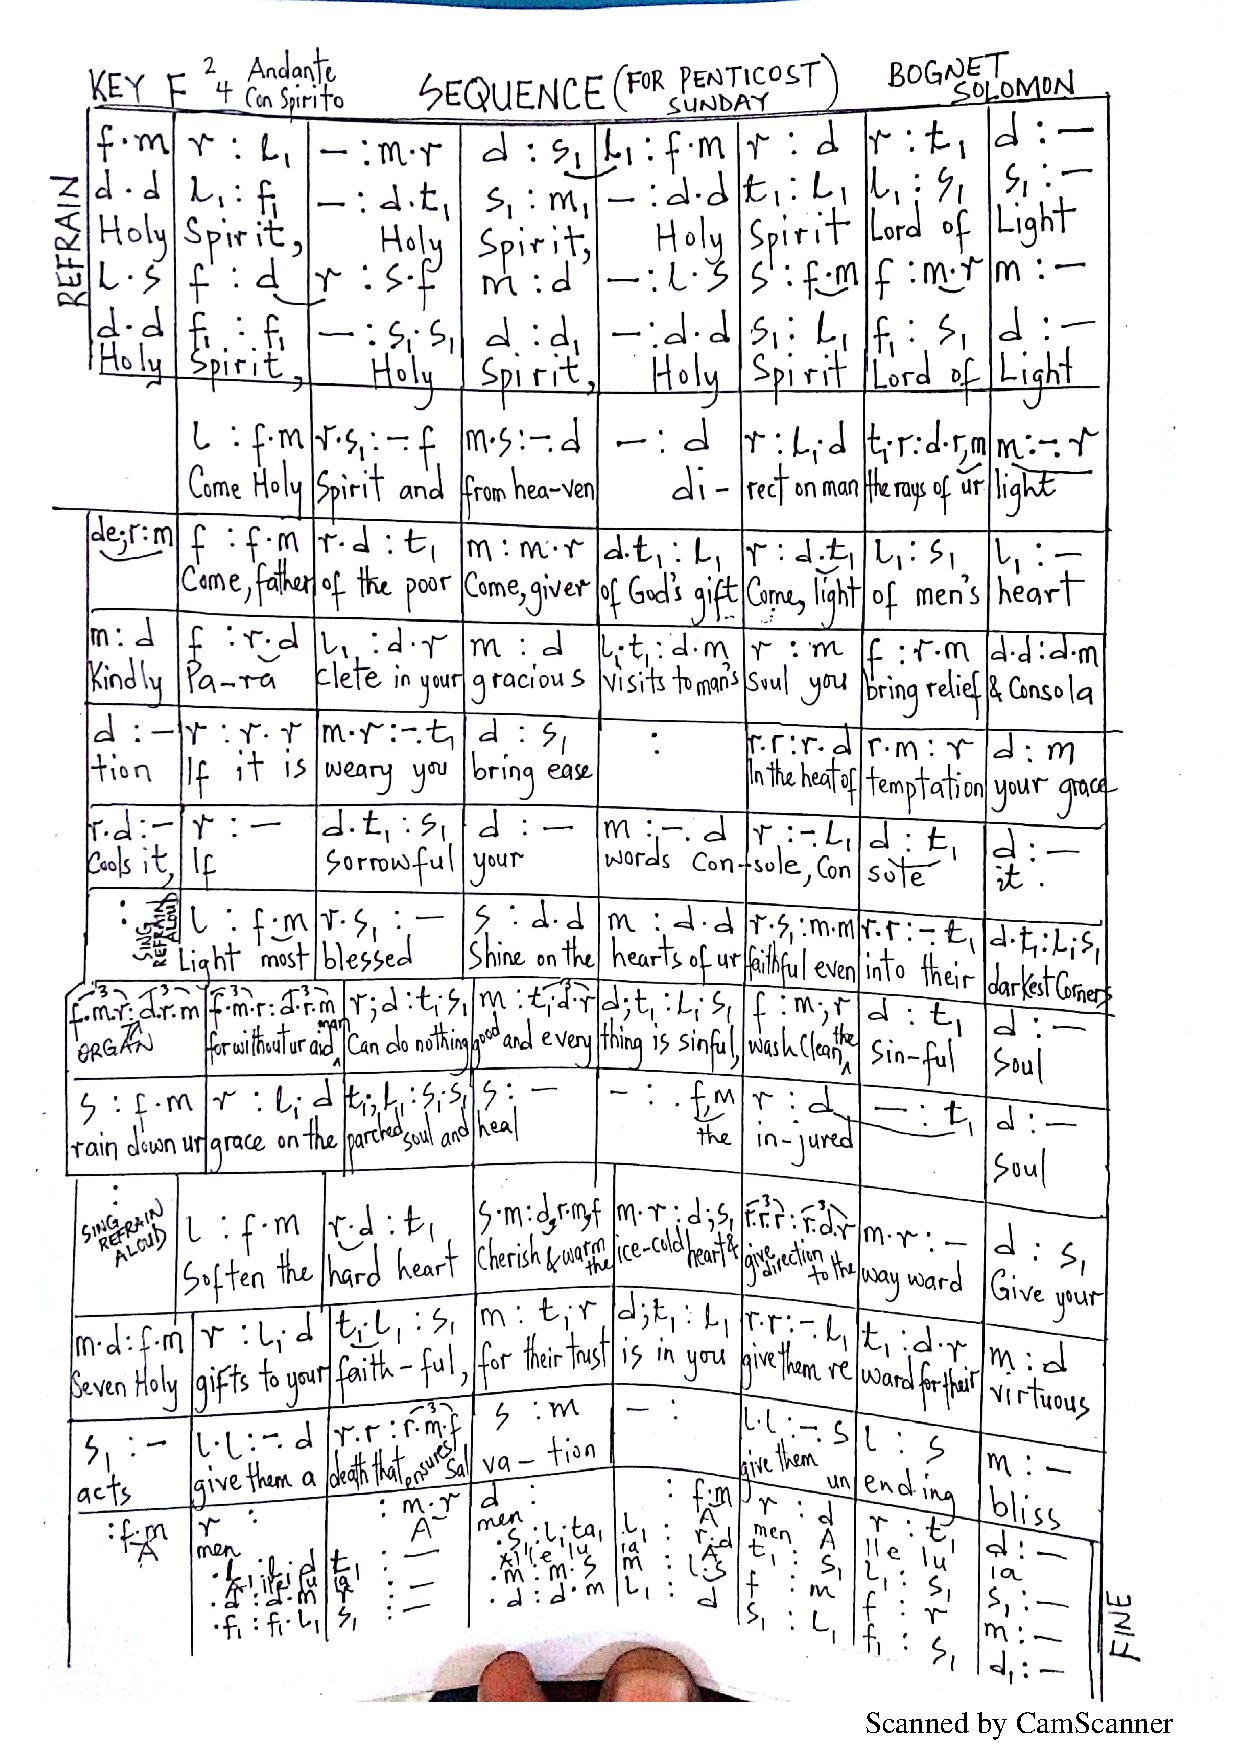 KEY F 2/4 Andante Con Spirito SEQUENCE (FOR PENTICOST SUNDAY) BOGNET SOLOMON
REFRAIN
f.m r : L₁ – : m.r d : s₁ L₁ : f.m r : d r : t₁ d : –
d.d L₁ : f₁ – : d.t₁ s₁ : m₁ – : d.d t₁ : L₁ L₁ : s₁ s₁ : –
Holy Spirit, Holy Spirit, Holy Spirit Lord of Light
L.s f : d r : s.f m : d – : L.s s : f.m f : m.r m : –
d.d f₁ : f₁ – : s₁.s₁ d : d₁ – : d.d s₁ : L₁ f₁ : s₁ d : –
Holy Spirit, Holy Spirit, Holy Spirit Lord of Light
l : f.m r.s₁ : –.f m.s : –.d – : d r : L₁;d t₁;r : d.r,m m : –.r
Come Holy Spirit and from hea-ven di- rect on man the rays of ur light
de;r : m f : f.m r.d : t₁ m : m.r d.t₁ : L₁ r : d.t₁ L₁ : s₁ L₁ : –
Come, father of the poor Come, giver of God's gift Come, light of men's heart
m : d f : r.d L₁ : d.r m : d L₁.t₁ : d.m r : m f : r.m d.d : d.m
Kindly Pa-ra clete in your gracious visits to man's soul you bring relief & Consola
d : – r : r.r m.r : –.t₁ d : s₁ : r.r : r.d r.m : r d : m
tion If it is weary you bring ease In the heat of temptation your grace
r.d : – r : – d.t₁ : s₁ d : – m : –.d r : –.L₁ d : t₁ d : –
Cools it, If sorrowful your words Con-sole, Con sole it.
: l : f.m r.s₁ : – s : d.d m : d.d r.s₁ : m.m r.r : –.t₁ d.t₁ : L₁;s₁
SING REFRAIN ALOUD Light most blessed Shine on the hearts of ur faithful even into their darkest Corners
f.m.r : d.r.m f.m.r : d.r.m r;d : t₁;s₁ m : t₁.d.r d;t₁ : L₁;s₁ f : m;r d : t₁ d : –
ORGAN for without ur aid man Can do nothing good and every thing is sinful, wash clean, the sin-ful Soul
s : f.m r : L₁;d t₁;L₁ : s₁;s₁ s : – – : .f,m r : d – : t₁ d : –
rain down ur grace on the parched soul and heal the in-jured Soul
: l : f.m r.d : t₁ s.m : d,r.m,f m.r : d;s₁ r.r.r : r.d.r m.r : – d : s₁
SING REFRAIN ALOUD Soften the hard heart Cherish & warm the ice-cold heart & give direction to the way ward Give your
m.d : f.m r : L₁;d t₁;L₁ : s₁ m : t₁;r d;t₁ : L₁ r.r : –.L₁ t₁ : d.r m : d
Seven Holy gifts to your faith-ful, for their trust is in you give them re ward for their virtuous
s₁ : – l.l : –.d r.r : r.m.f s : m – : l.l : –.s l : s m : –
acts give them a death that ensures Sal va-tion give them un ending bliss
: f.m r : : m.r d : : f.m r : d r : t₁ d : –
A men A men A men A lle lu ia
FINE
Scanned by CamScanner